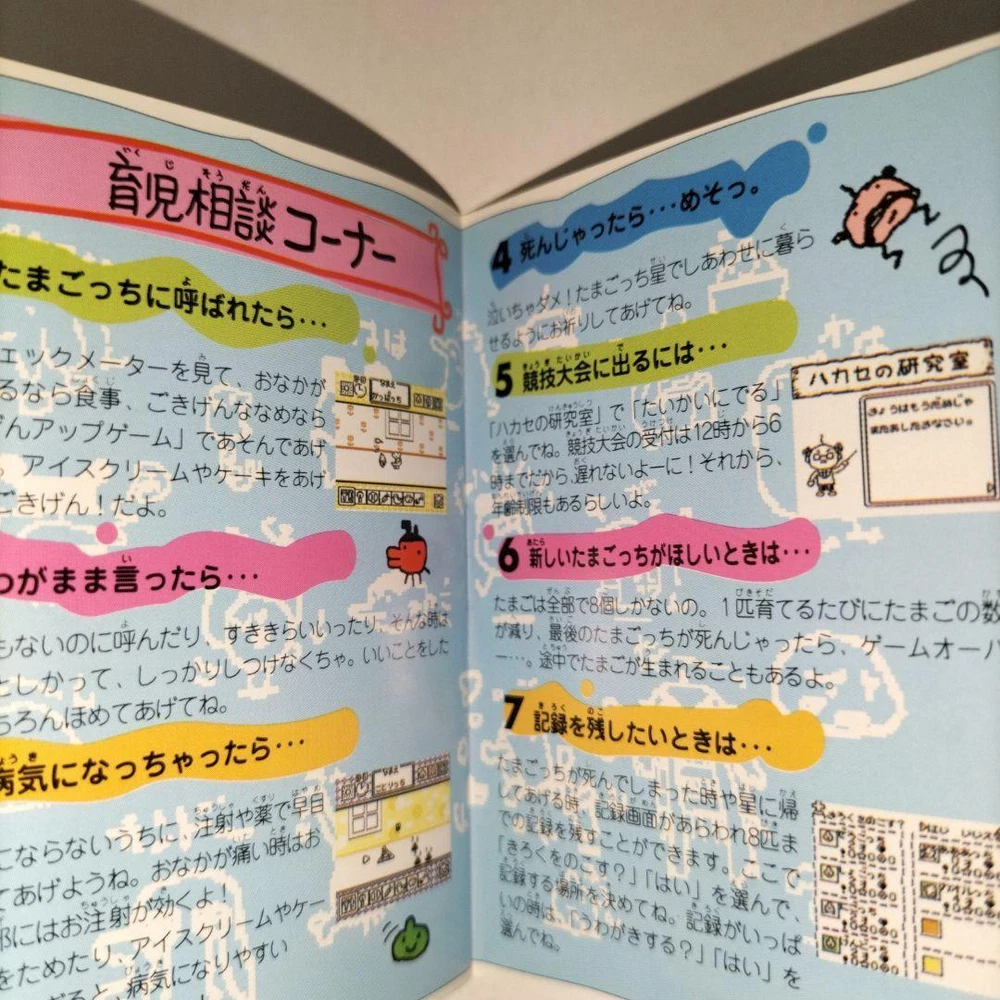 育児相談コーナー
たまごっちに呼ばれたら…
ェックメーターを見て、おなかが
るなら食事、ごきげんななめなら
げんアップゲーム」であそんであげ
。アイスクリームやケーキをあげ
ごきげん！だよ。
わがまま言ったら…
もないのに呼んだり、すききらいいったり、そんな時は
としかって、しっかりしつけなくちゃ。いいことをした
ちろんほめてあげてね。
病気になっちゃったら…
にならないうちに、注射や薬で早目
てあげようね。おなかが痛い時はお
邪にはお注射が効くよ！
をためたり、アイスクリームやケー
ぎると、病気になりやすい
4 死んじゃったら…めそっ。
泣いちゃダメ！たまごっち星でしあわせに暮ら
せるようにお祈りしてあげてね。
5 競技大会に出るには…
「ハカセの研究室」で「たいかいにでる」
を選んでね。競技大会の受付は12時から6
時までだから、遅れないよーに！それから、
年齢制限もあるらしいよ。
ハカセの研究室
きょうはもうだめじゃ
またあしたきなさい。
6 新しいたまごっちがほしいときは…
たまごは全部で8個しかないの。1匹育てるたびにたまごの数
が減り、最後のたまごっちが死んじゃったら、ゲームオーバ
ー…。途中でたまごが生まれることもあるよ。
7 記録を残したいときは…
たまごっちが死んでしまった時や星に帰
してあげる時、記録画面があらわれ8匹ま
での記録を残すことができます。ここで
「きろくをのこす？」「はい」を選んで、
記録する場所を決めてね。記録がいっぱ
いの時は、「うわがきする？」「はい」を
選んでね。